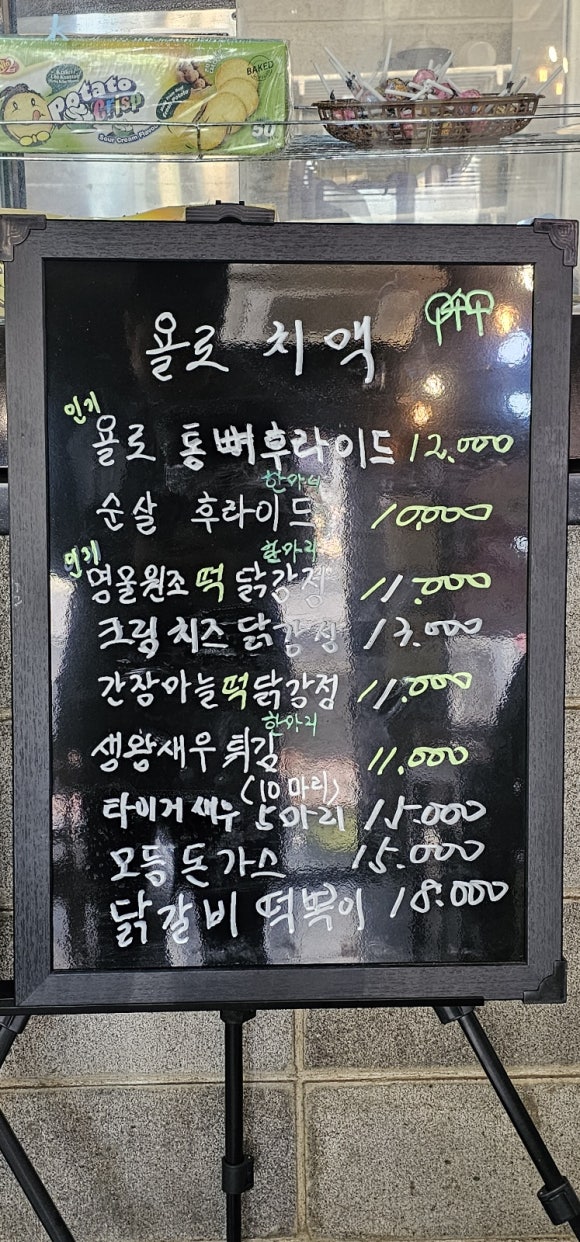 Potato Crisp
BAKED
Sour Cream Flavour
50
욜로 치맥
인기
욜로 통뼈후라이드 12.000
한마리
순살 후라이드 10.000
인기 한마리
명울원조 떡 닭강정 11.000
크림치즈 닭강정 13.000
간장마늘떡닭강정 11.000
한마리
생왕새우튀김 11.000
(10마리)
타이거새우 5마리 15.000
모듬돈가스 15.000
닭갈비 떡볶이 18.000